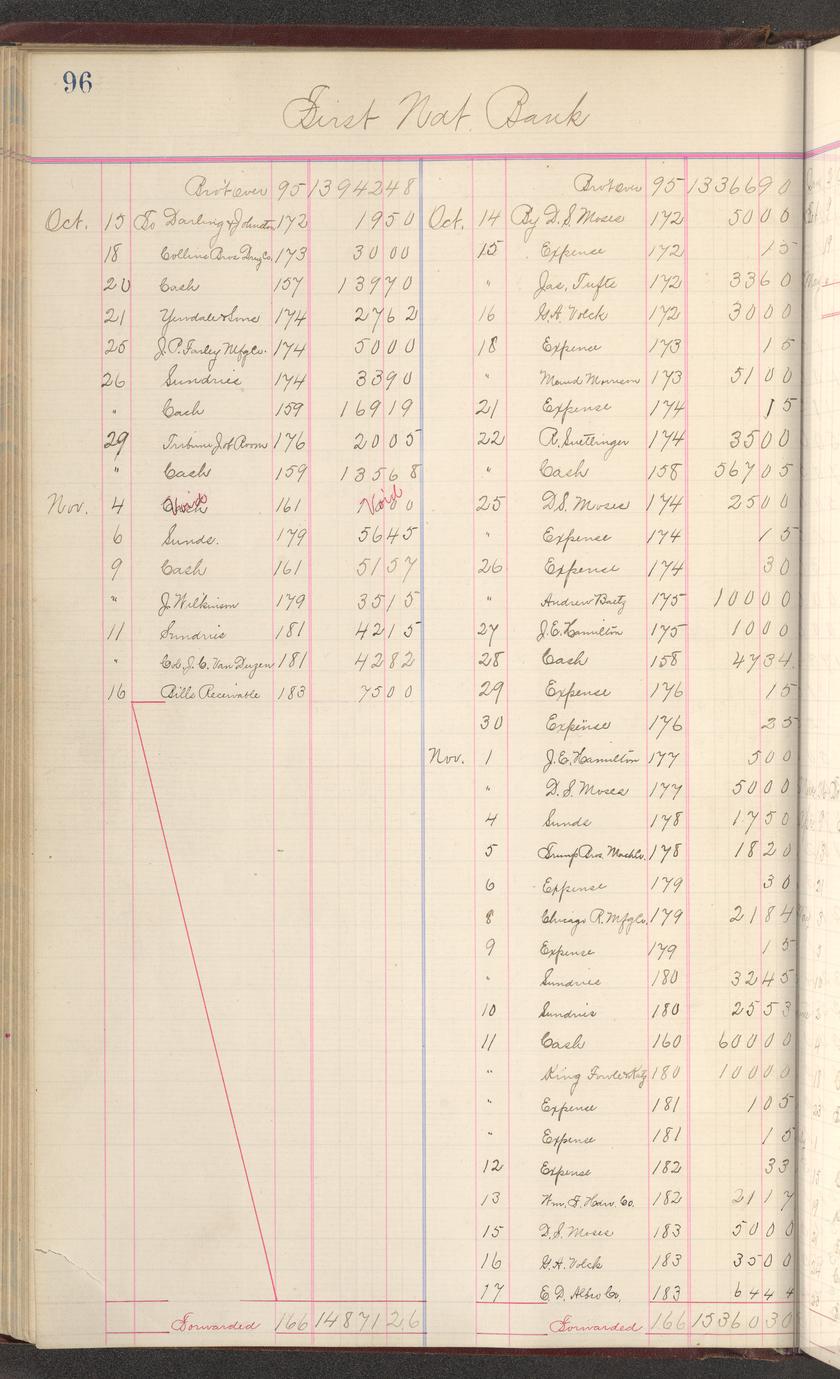 96
First Nat. Bank
Bro't over 95 13942 48
Oct. 15 To Darling & Johnston 172 19 50
18 Collins Bros Drug Co. 173 30 00
20 Cash 157 139 70
21 Yewdale & Sons 174 27 62
25 J. P. Farley Mfg Co. 174 50 00
26 Sundries 174 33 90
" Cash 159 169 19
29 Tribune Job Room 176 20 05
" Cash 159 135 68
Nov. 4 Void 161 Void
6 Sunds. 179 56 45
9 Cash 161 51 57
" J. Wilkinson 179 35 15
11 Sundries 181 42 15
" Col. J. C. Van Duzen 181 42 82
16 Bills Receivable 183 75 00
Forwarded 166 14871 26
Bro't over 95 13366 90
Oct. 14 By D. S. Moses 172 50 00
15 Expense 172 15
" Jas. Tufts 172 33 60
16 G. A. Volck 172 30 00
18 Expense 173 15
" Maud Morrison 173 51 00
21 Expense 174 15
22 R. Suettinger 174 35 00
" Cash 158 567 05
25 D. S. Moses 174 25 00
" Expense 174 15
26 Expense 174 30
" Andrew Baetz 175 100 00
27 J. E. Hamilton 175 10 00
28 Cash 158 47 34
29 Expense 176 15
30 Expense 176 25
Nov. 1 J. E. Hamilton 177 5 00
" D. S. Moses 177 50 00
4 Sunds 178 17 50
5 Trump Bros. Mach Co. 178 18 20
6 Expense 179 30
8 Chicago R. Mfg Co. 179 21 84
9 Expense 179 15
" Sundries 180 32 45
10 Sundries 180 25 53
11 Cash 160 600 00
" King Fowle & Katz 180 100 00
" Expense 181 1 05
" Expense 181 15
12 Expense 182 33
13 Wm. F. Hdw. Co. 182 21 17
15 D. S. Moses 183 50 00
16 G. A. Volck 183 35 00
17 E. D. Albro Co. 183 64 44
Forwarded 166 15360 30